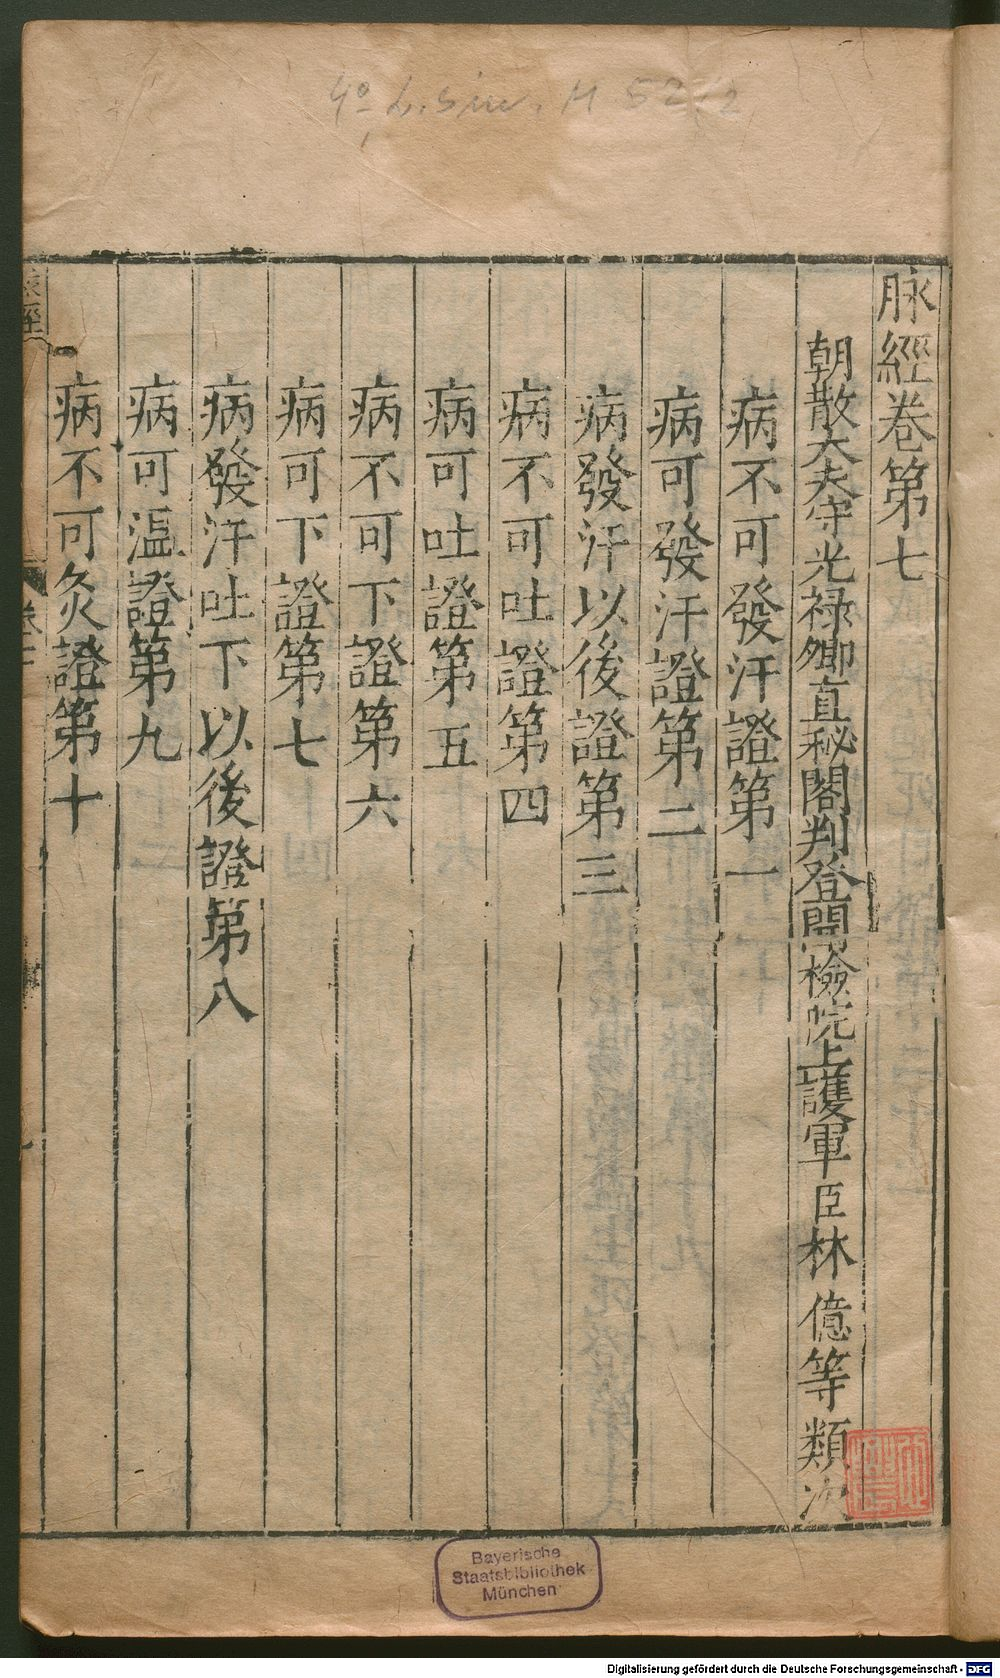 4° L. sin. H 52-2
脉經卷第七
朝散大夫守光禄卿直秘閣判登聞檢院上護軍臣林億等類次
病不可發汗證第一
病可發汗證第二
病發汗以後證第三
病不可吐證第四
病可吐證第五
病不可下證第六
病可下證第七
病發汗吐下以後證第八
病可温證第九
病不可灸證第十
脉經
Bayerische
Staatsbibliothek
München
Digitalisierung gefördert durch die Deutsche Forschungsgemeinschaft - DFG